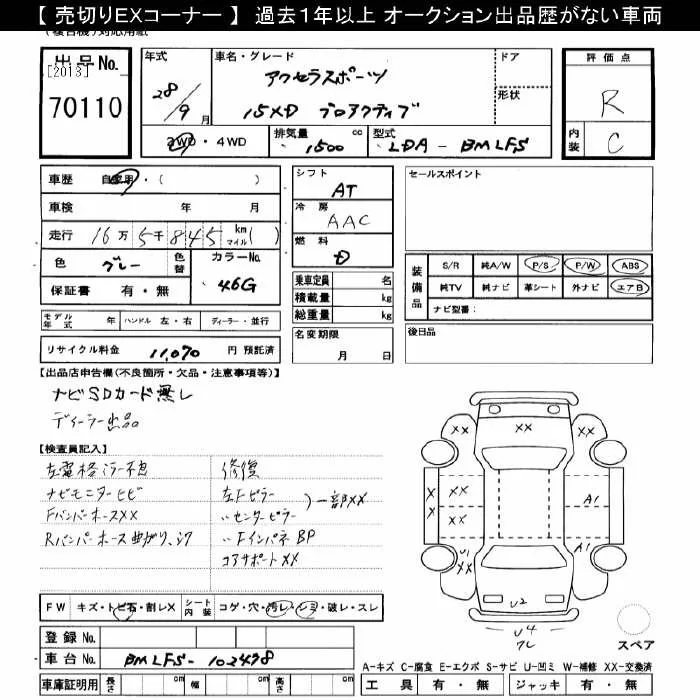 【 売切りEXコーナー 】 過去1年以上 オークション出品歴がない車両
出品No.
[2013]
70110
年式
28/9月
車名・グレード
アクセラスポーツ
15XD プロアクティブ
ドア
形状
評価点
R
内装
C
2WD・4WD
排気量
1500 cc
型式
LDA - BMLFS
車歴 自家用・( )
車検 年 月
走行 16万5千845 km マイル( )
色 グレー
色替
カラーNo.
46G
保証書 有・無
モデル年式 年 ハンドル 左・右 ディーラー・並行
リサイクル料金 11,070 円 預託済
シフト
AT
冷房
AAC
燃料
D
乗車定員 名
積載量 kg
総重量 kg
名変期限
月 日
セールスポイント
装備品
S/R 純A/W P/S P/W ABS
純TV 純ナビ 革シート 外ナビ エアB
ナビ型番：
後日品
【出品店申告欄(不良箇所・欠品・注意事項等)】
ナビSDカード無し
ディーラー出品
【検査員記入】
左電格ミラー不良
ナビモニターヒビ
FバンパーホースXX
Rバンパーホース曲がり、
修復
左Fピラー
〃センターピラー
)一部XX
〃FインパネBP
コアサポートXX
FW キズ・トビ石・割レX
シート内装 コゲ・穴・汚レ・シミ・破レ・スレ
登録 No.
車台 No. BMLFS-102478
車庫証明用 長さ cm 幅 cm 高さ cm
XX
XX
X
X
XX
XX
A1
A1
U1
XX
U2
U4
ワレ
スペア
A-キズ C-腐食 E-エクボ S-サビ U-凹ミ W-補修 XX-交換済
工具 有・無 ジャッキ 有・無